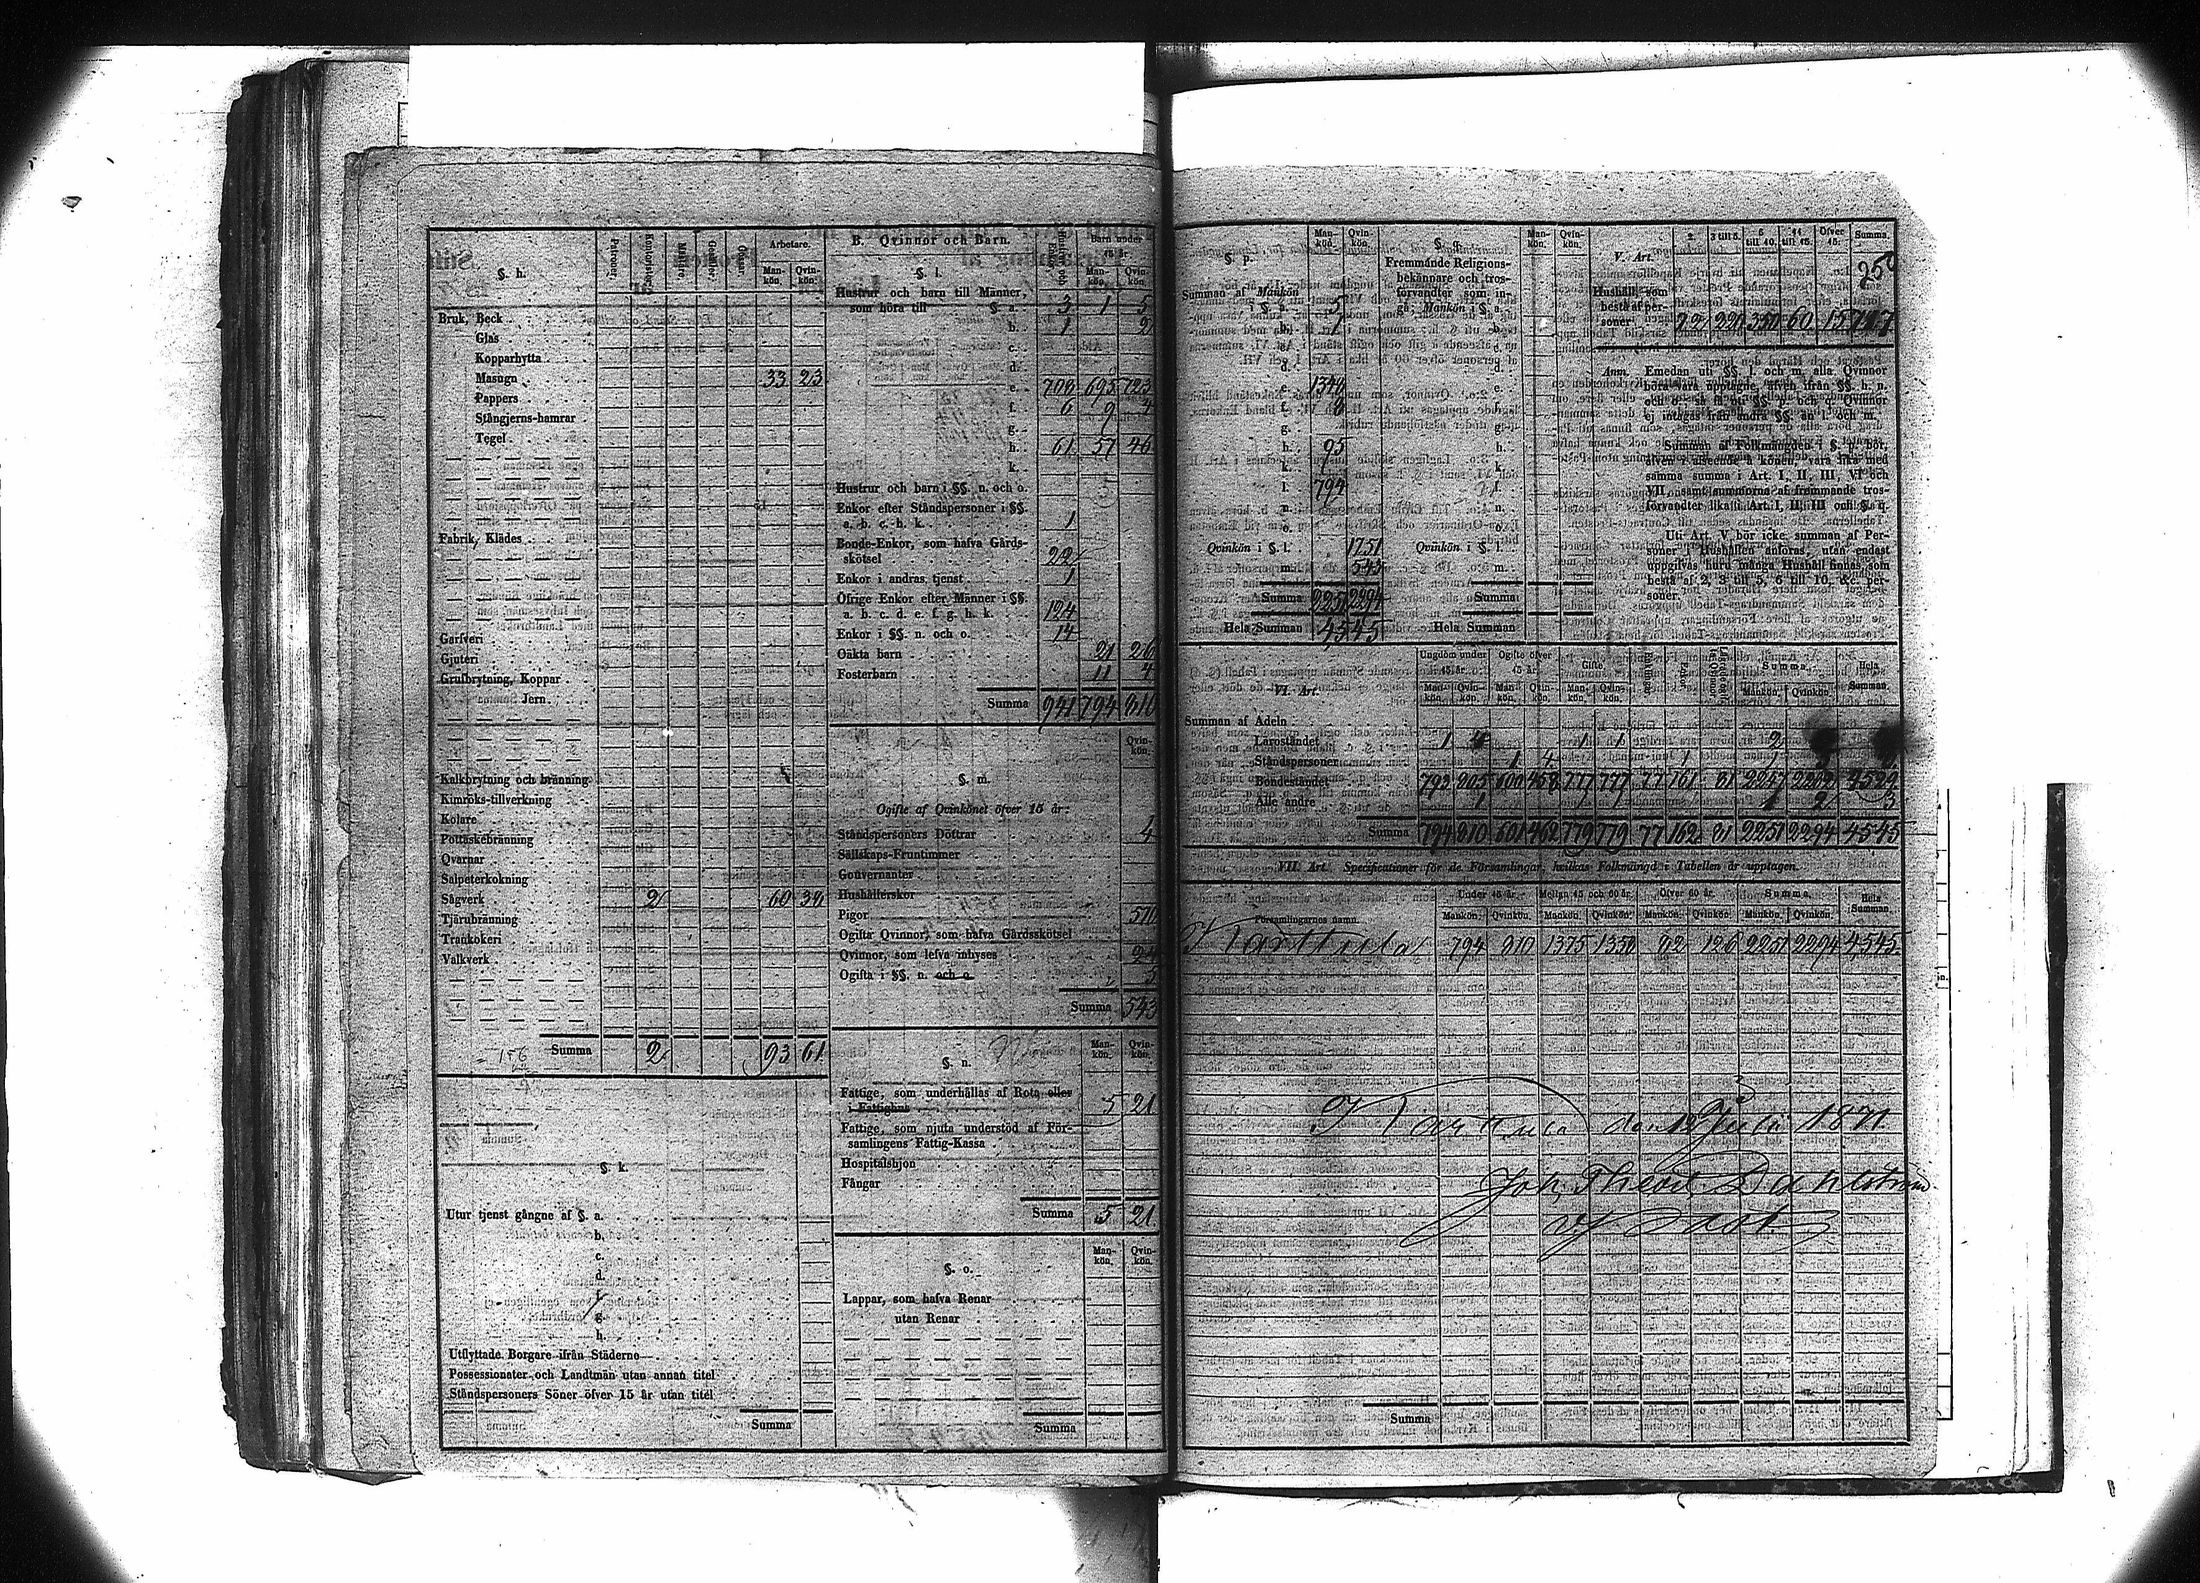 §. h.
Patroner. Kontorister. Mästare. Gesäller. Arbetare.
Mankön. Qvinkön.
Bruk, Beck
Glas
Kopparhytta
Masugn 33 23
Pappers
Stångjerns-hamrar
Tegel
Fabrik, Klädes
Garfveri
Gjuteri
Grufbrytning, Koppar
Jern
Kalkbrytning och bränning
Kimröks-tillverkning
Kolare
Pottaskebränning
Qvarnar
Salpeterkokning
Sågverk 2 60 38
Tjärubränning
Trankokeri
Valkverk
Summa 2 93 61
§. k.
Utur tjenst gångne af §. a.
b.
c.
d.
f.
g.
h.
Utflyttade Borgare ifrån Städerne
Possessionater och Landtmän utan annan titel
Ståndspersoners Söner öfver 15 år utan titel
Summa
B. Qvinnor och Barn.
Hustrur och Enkor. Barn under 15 år.
Mankön. Qvinkön.
§. l.
Hustrur och barn till Männer,
som höra till §. a. 3 1 5
b. 1 2
c.
d.
e. 708 695 723
f. 6 9 4
g.
h. 61 57 46
k.
Hustrur och barn i §§. n. och o.
Enkor efter Ståndspersoner i §§.
a. b. c. h. k. 1
Bonde-Enkor, som hafva Gårds-
skötsel 22
Enkor i andras tjenst 1
Öfrige Enkor efter Männer i §§.
a. b. c. d. e. f. g. h. k. 124
Enkor i §§. n. och o. 14
Oäkta barn 21 26
Fosterbarn 11 4
Summa 941 794 810
Qvinkön.
§. m.
Ogifte af Qvinkönet öfver 15 år:
Ståndspersoners Döttrar 4
Sällskaps-Fruntimmer
Gouvernanter
Hushållerskor
Pigor 510
Ogifta Qvinnor, som hafva Gårdsskötsel
Qvinnor, som lefva inhyses 24
Ogifta i §§. n. och o. 5
Summa 543
§. n.
Mankön. Qvinkön.
Fattige, som underhållas af Rota eller
i Fattighus 5 21
Fattige, som njuta understöd af För-
samlingens Fattig-Kassa
Hospitalshjon
Fångar
Summa 5 21
§. o.
Mankön. Qvinkön.
Lappar, som hafva Renar
utan Renar
Summa
§. p.
Mankön. Qvinkön.
Summan af Mankön
i §. a. 5
b. 1
c.
d.
e. 1348
f. 8
g.
h. 95
k.
l. 794
n.
o.
Qvinkön i §. l. 1751
m. 543
Summa 2251 2294
Hela Summan 4545
§. q.
Mankön. Qvinkön.
Fremmande Religions-
bekännare och tros-
förvandter som in-
gå: Mankön i §. a.
b.
c.
d.
e.
f.
g.
h.
k.
l.
n.
o.
Qvinkön i §. l.
m.
Summa
Hela Summan
V. Art.
2. 3 till 5. 6 till 10. 11 till 15. Öfver 15. Summa.
250
Hushåll som
bestå af per-
soner 22 220 60 15
Anm. Emedan uti §§. l. och m. alla Qvinnor
böra vara upptagne, äfven ifrån §§. h. n.
och o.; så få uti §§. p. och q. Qvinnor
ej intagas från andra §§. än l. och m.
Summan af Folkmängden i §. p. bör,
äfven i afseende å könen, vara lika med
samma summa i Art. I, II, III, VI och
VII, samt summorna af fremmande tros-
förvandter lika i Art. I, II, III och §. q.
Uti Art. V bör icke summan af Per-
soner i Hushållen anföras, utan endast
uppgifvas huru många Hushåll finnas, som
bestå af 2, 3 till 5, 6 till 10, &c. per-
soner.
VI. Art.
Ungdom under 15 år. Ogifte öfver 15 år. Gifte. Enklingar. Enkor. Summa. Hela Summan.
Mankön. Qvinkön. Mankön. Qvinkön. Mankön. Qvinkön. Mankön. Qvinkön.
Summan af Adeln
Läroståndet 1 4 1 1 2
Ståndspersoner 1 4 1 1
Bondeståndet 793 805 600 458 777 777 77 161 81 2247 2282 4529
Alle andre 1 1 1 1 2 3
Summa 794 810 601 462 779 779 77 162 81 2251 2294 4545
VII. Art. Specificationer för de Församlingar, hvilkas Folkmängd i Tabellen är upptagen.
Församlingarnes namn. Under 15 år. Mellan 15 och 60 år. Öfver 60 år. Summa. Hela Summan.
Mankön. Qvinkön. Mankön. Qvinkön. Mankön. Qvinkön. Mankön. Qvinkön.
Karttula 794 810 1375 1358 82 126 2251 2294 4,545
Karttula den 12 Juli 1871
Joh. Theod. Dahlström
Summa